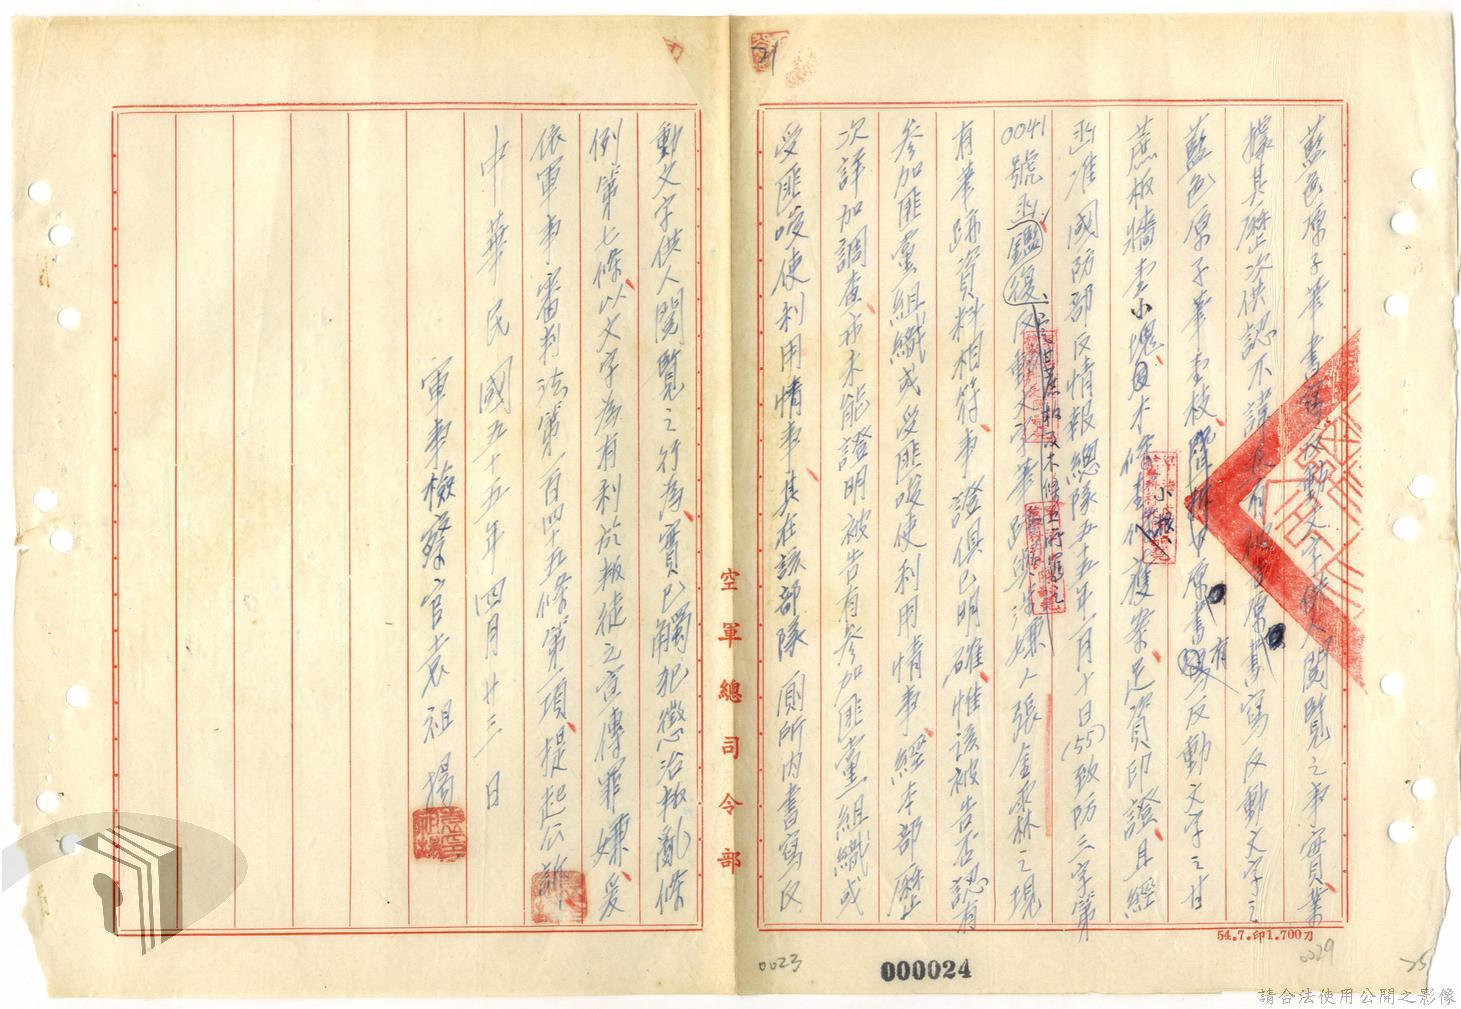 藍色原子筆書寫反動文字供人閱覽之事實業
據其歷次供認不諱復有供書原戡寫反動文字之
藍色原子筆壹枝有反動文字之甘
蔗板牆壹小塊木條小板獲案足資印證且經
函准國防部反情報總隊五十五年一月十日(55)致防三字第
0041號函鑑復反動文字筆跡與涉嫌人張金霖之現
有筆跡資料相符事證俱已明確惟該被告否認有
參加匪黨組織或受匪唆使利用情事經本部歷
次詳加調查亦未能證明被告有參加匪黨組織或
受匪唆使利用情事其在該部隊廁所內書寫反
動文字供人閱覽之行為實已觸犯懲治叛亂條
例第七條以文字為有利於叛徒之宣傳罪嫌爰
依軍事審判法第一百四十五條第一項提起公訴
中華民國五十五年四月廿三日
軍事檢察官袁祖揚
空軍總司令部
54.7.印1.700刀
0023
000024
0029
請合法使用公開之影像